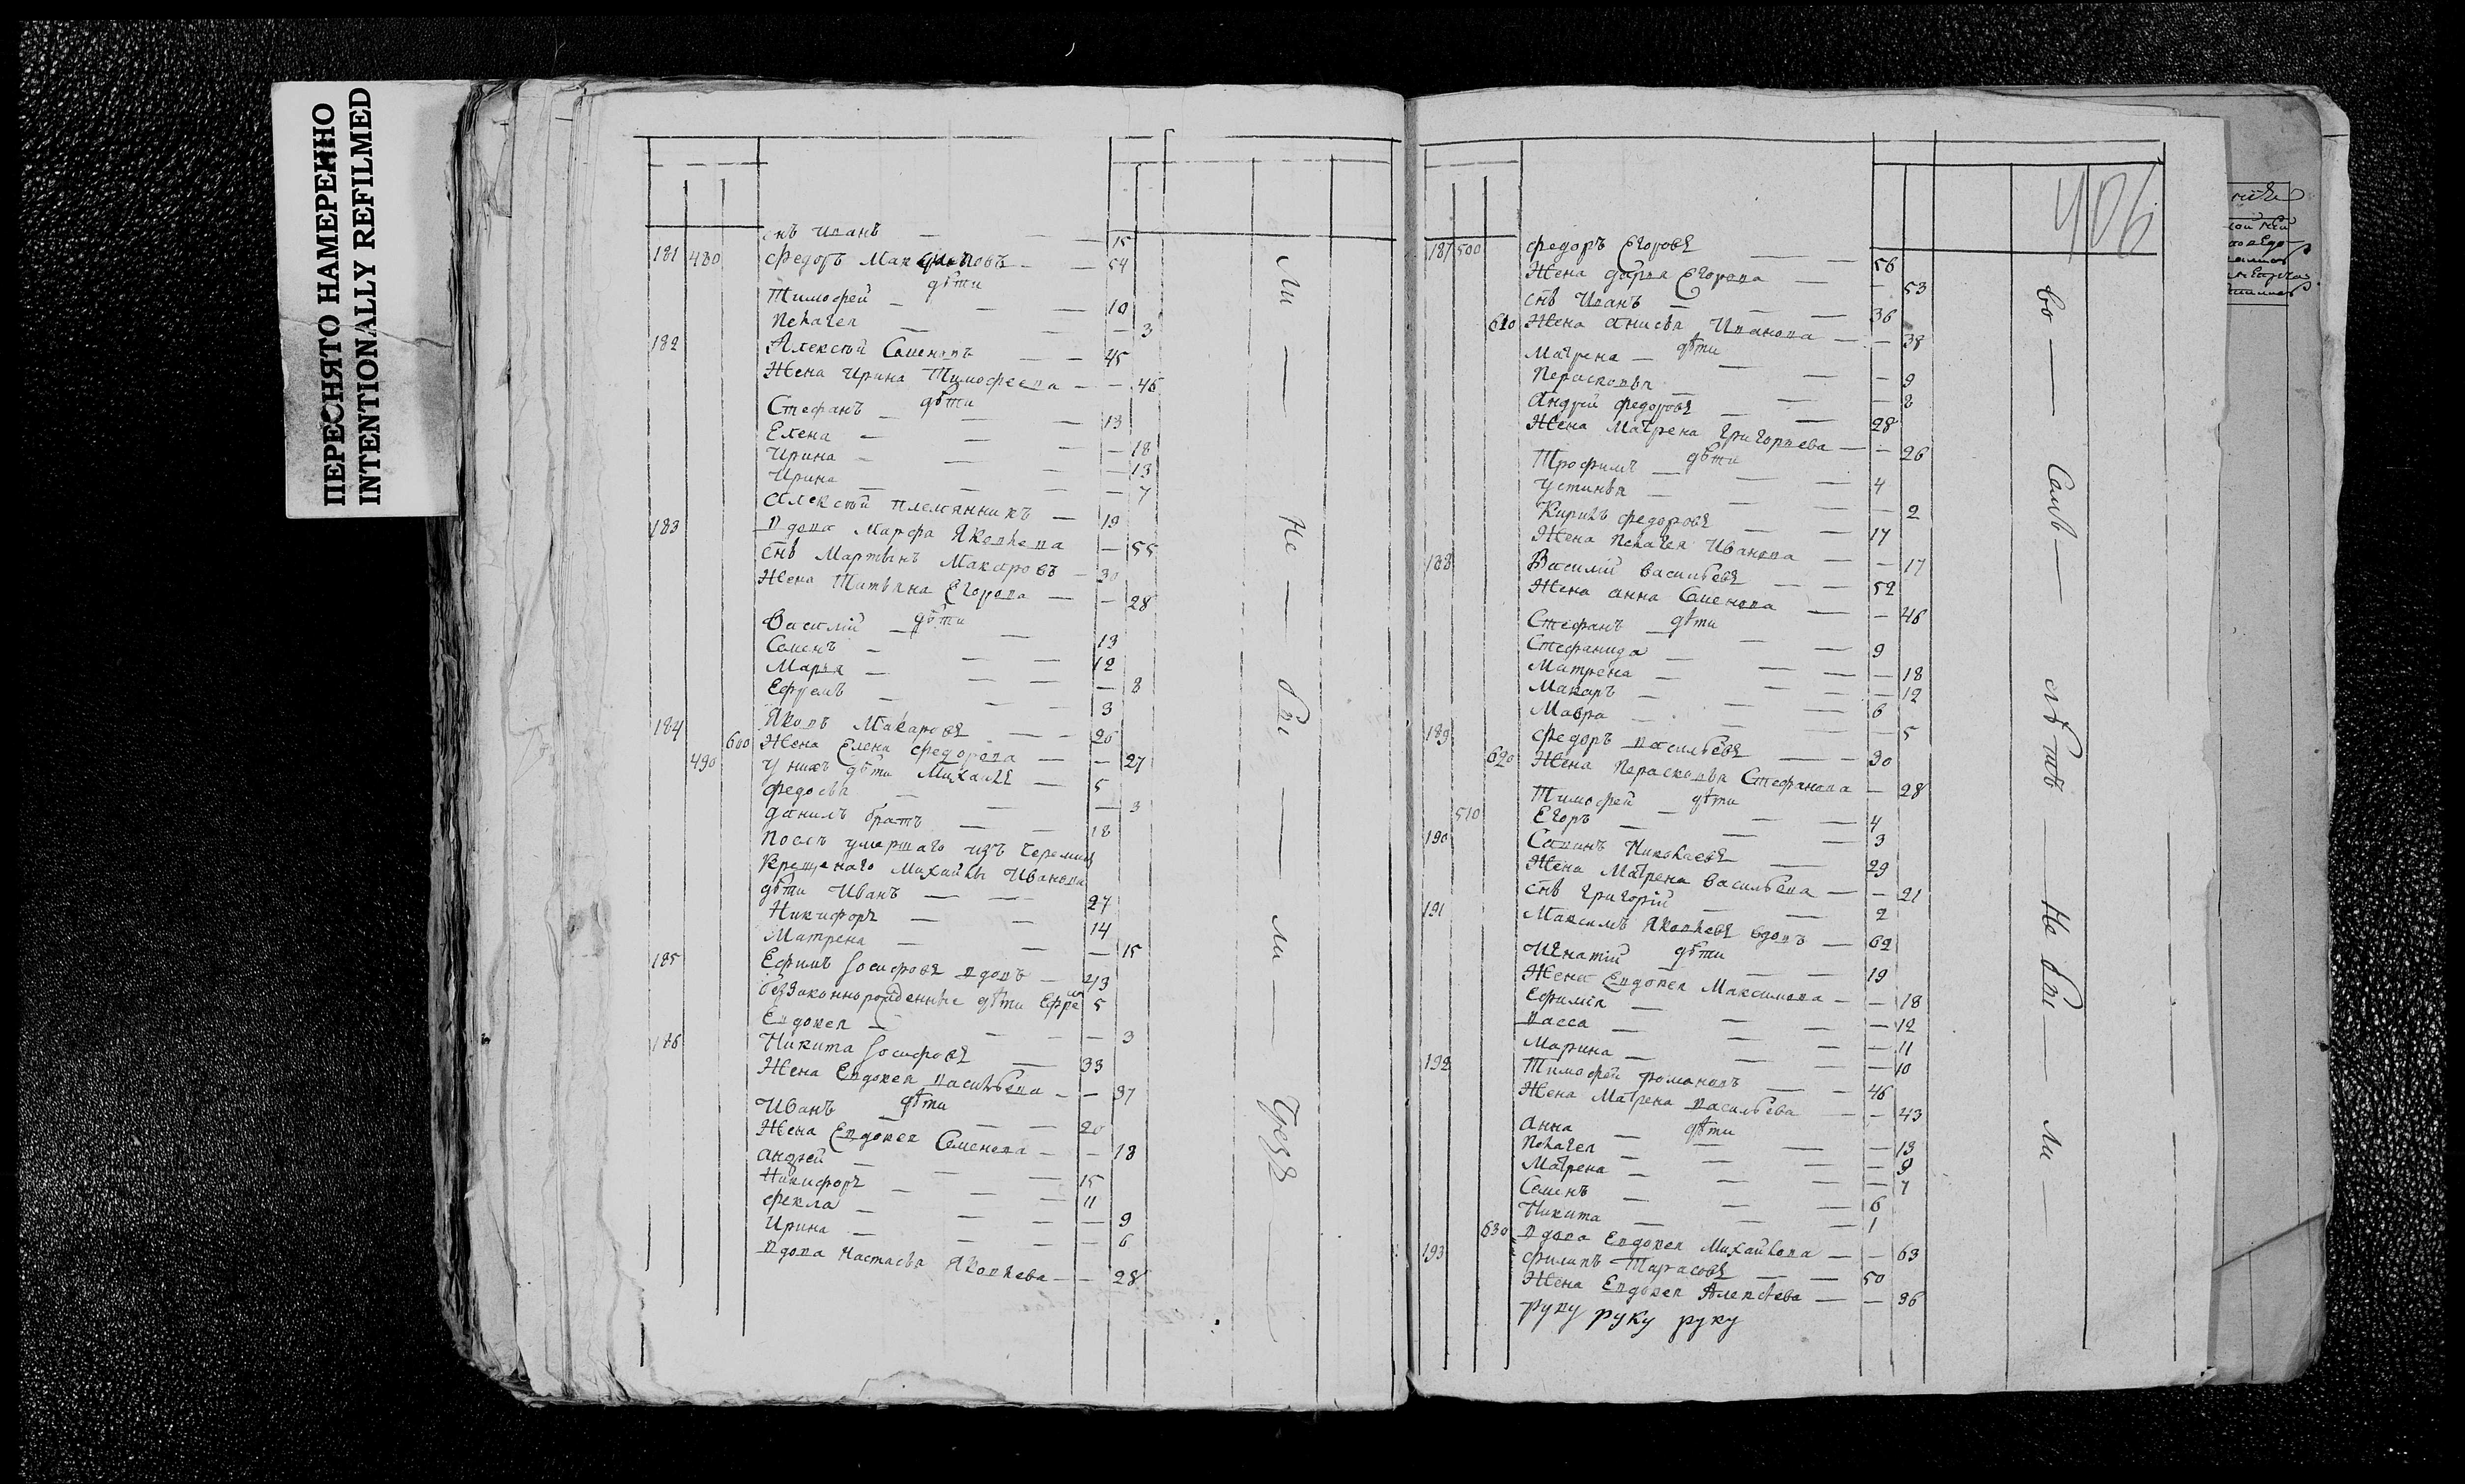 ПЕРЕСНЯТО НАМЕРЕННО
INTENTIONALLY REFILMED
снъ Иванъ — — 15
181 480 Федоръ — 54
дѣти
Тимофей — — 10
Пелагея — — 3
182 Алексѣй Семеновъ — 45
Жена Ирина Тимофеева — — 46
дѣти
Стефанъ — — 13
Елена — — 18
Ирина — — 13
Ирина — — 7
Алексѣй племянникъ — 19
183 вдова Марфа Яковлева — 55
снъ Мартынъ Макаровъ — 30
Жена Татьяна Егорова — — 28
дѣти
Василий — — 13
Семенъ — — 12
Марья — — 8
Ефремъ — — 3
184 Яковъ Макаровъ — 26
600 Жена Елена Федорова — — 27
490 у нихъ дѣти Михаилъ — 5
Федосья — — 3
данилъ братъ — — 18
Послѣ умершаго изъ черемис
крещенаго Михайлы Иванова
дѣти Иванъ — — 27
Никифоръ — — 14
Матрена — — 15
185 Ефимъ Іосифовъ вдовъ — 43
беззаконнорожденные дѣти Ефремъ 5
Евдокея — — 3
186 Никита Іосифовъ — 33
Жена Евдокея Васильева — — 37
дѣти
Иванъ — — 20
Жена Евдокея Семенова — — 18
андрей — — 15
Никифоръ — — 11
Фекла — — 9
Ирина — — 6
вдова Настасья Яковлева — — 28
Ли — Не — бы — ли — Чрезъ
406
187 500 Федоръ Егоровъ — 56
Жена дарья Егорова — — 53
снъ Иванъ — — 36
610 Жена анисья Иванова — — 38
дѣти
Матрена — — 9
Перасковья — — 8
андрей Федоровъ — 28
Жена Матрена Григорьева — — 26
дѣти
Трофимъ — — 4
Устинья — — 2
Кирилъ Федоровъ — 17
Жена Пелагея Иванова — — 17
188 Василий Васильевъ — 52
Жена анна Семенова — — 46
дѣти
Стефанъ — — 9
Стефанида — — 18
Матрена — — 12
Макаръ — — 6
Мавра — — 5
189 Федоръ Васильевъ — 30
620 Жена Перасковья Стефанова — 28
дѣти
Тимофей — — 4
510 Егоръ — — 3
190 Савинъ Николаевъ — 29
Жена Матрена Васильева — — 21
снъ Григорий — — 2
191 Максимъ Яковлевъ вдовъ — 62
дѣти
Игнатий — — 19
Жена Евдокея Максимова — — 18
Ефимія — — 12
Васса — — 11
Марина — — 10
192 Тимофей Романовъ — 46
Жена Матрена Васильева — — 43
дѣти
анна — — 13
Пелагея — — 9
Матрена — — 7
Семенъ — — 6
Никита — — 1
630 вдова Евдокея Михайлова — — 63
193 Филипъ Тарасовъ — 50
Жена Евдокея Алексѣева — — 36
руку руку руку
Во — Семъ — лѣтѣ — Не бы — ли —